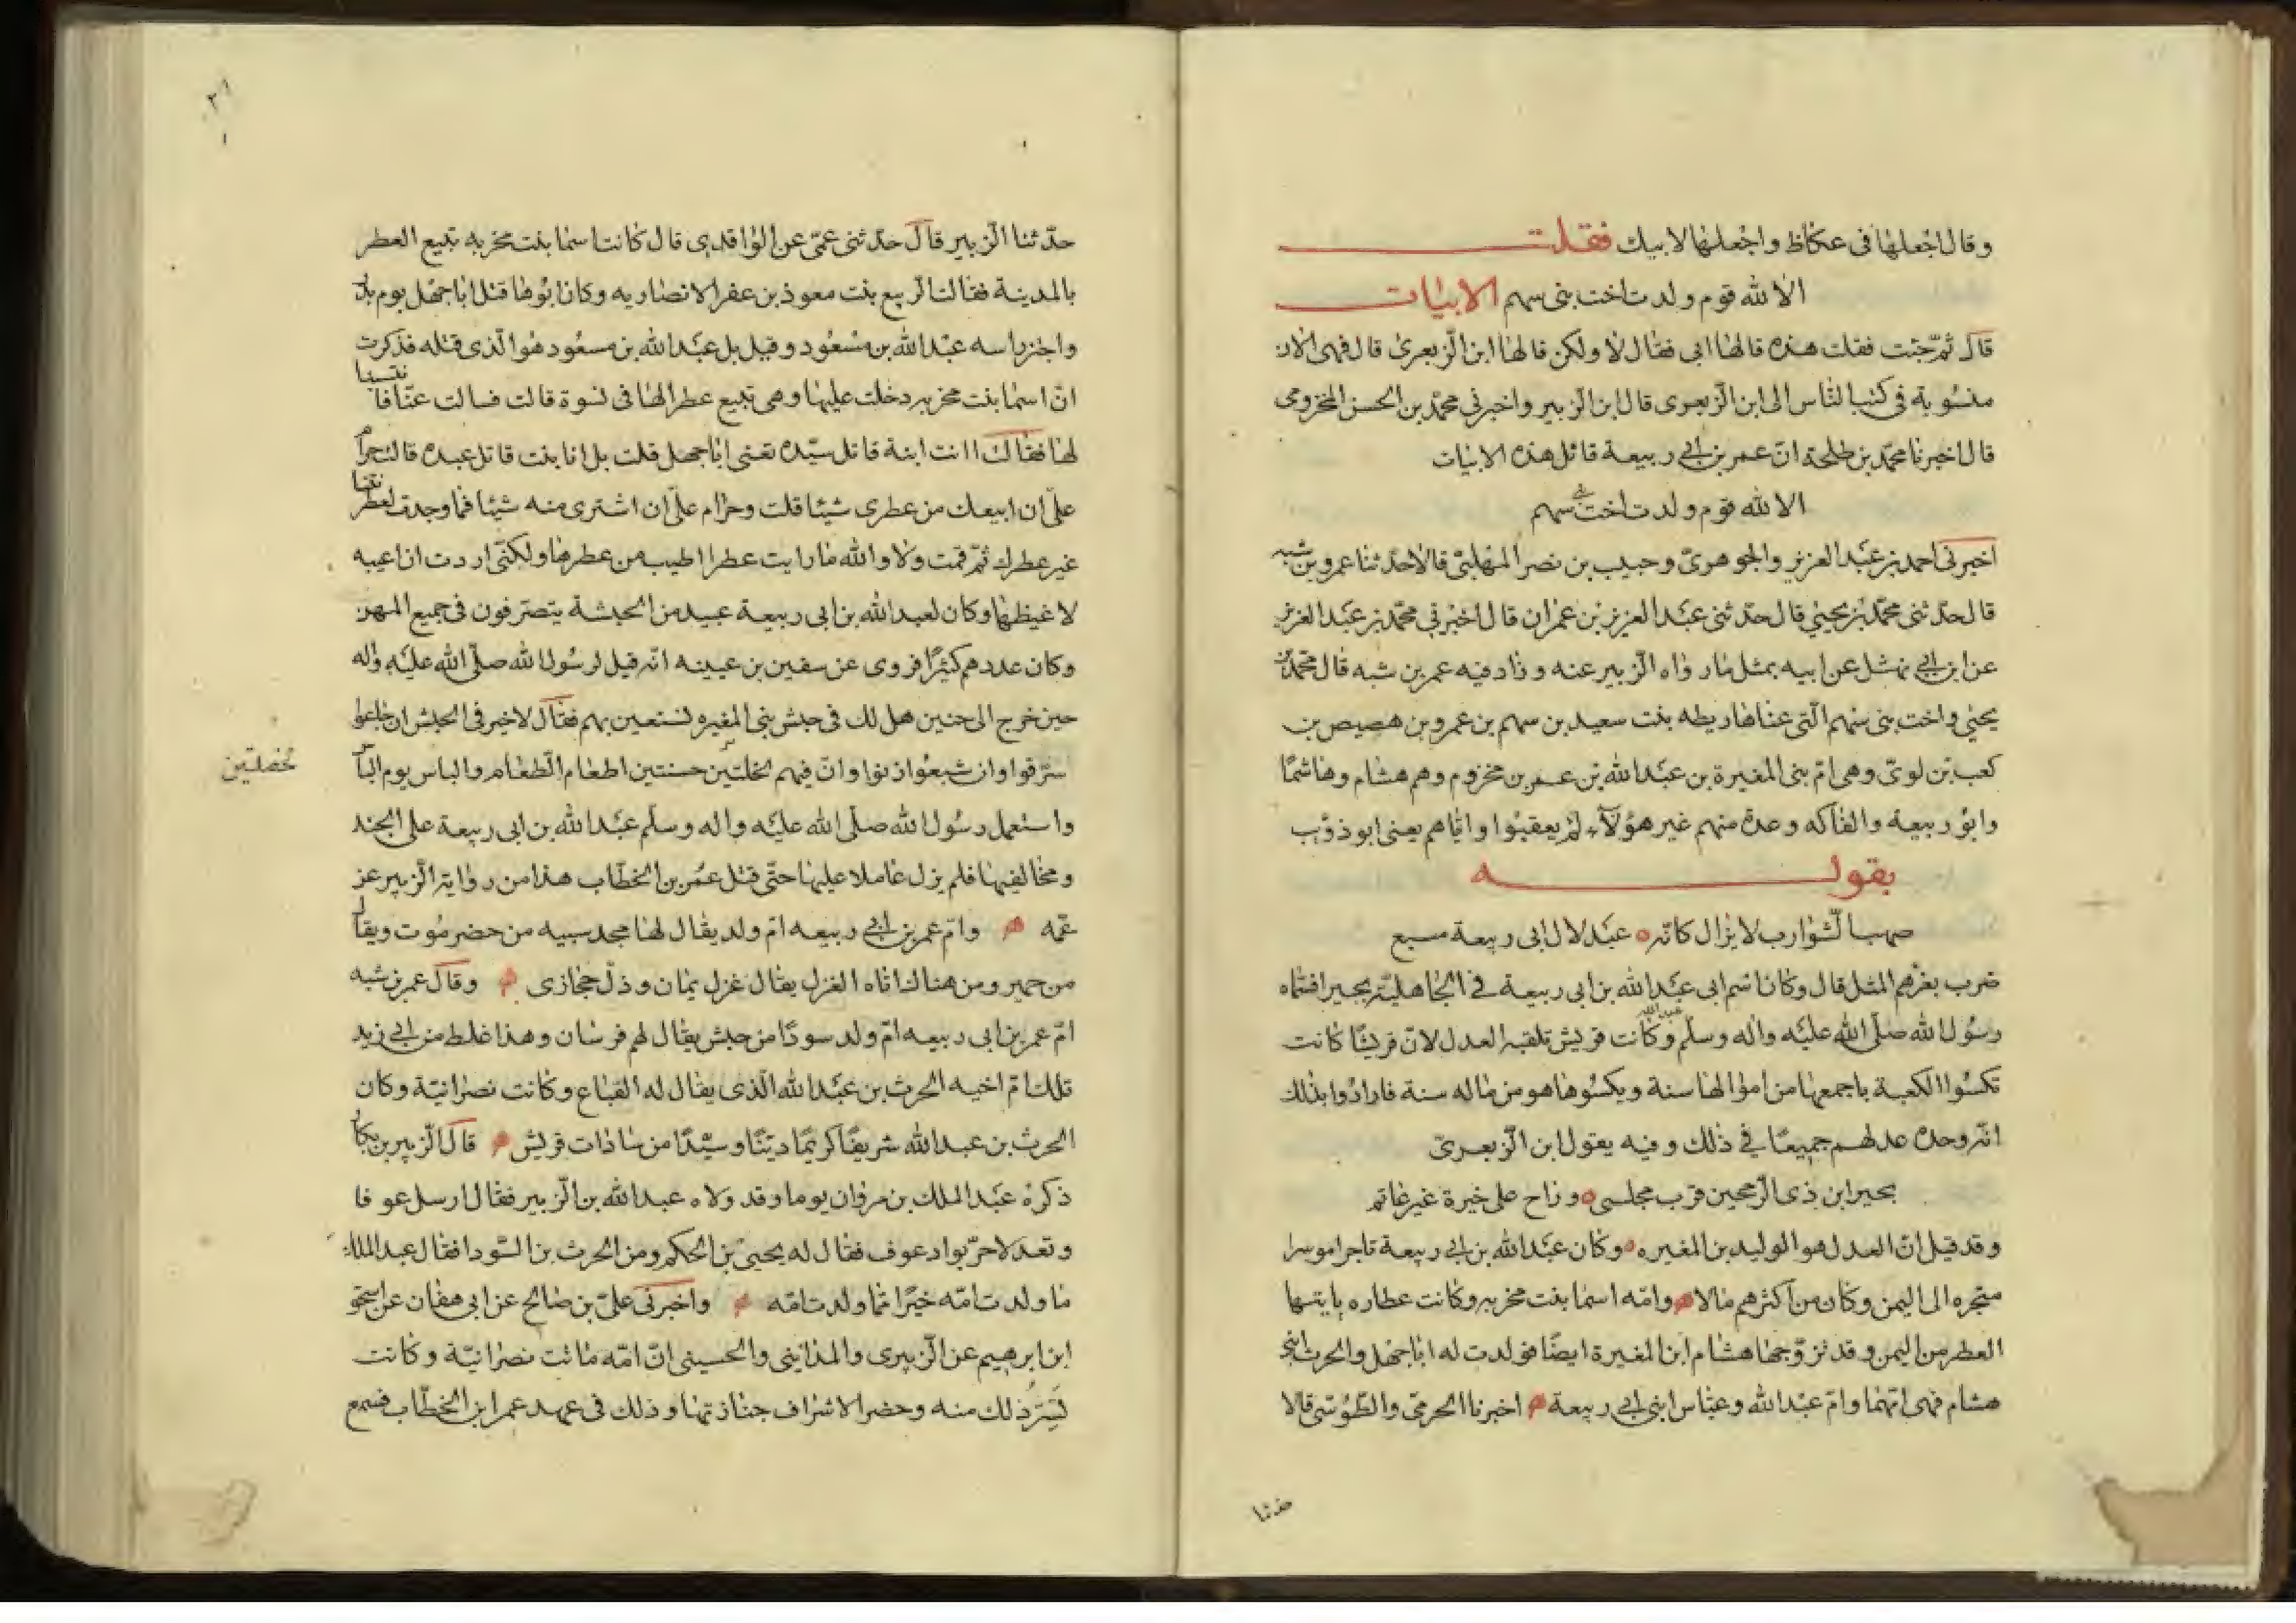 وقال اجعلها فى عكاظ واجعلها لابيك فقلت
الا لله قوم ولدت اخت بنى سهم الابيات
قال ثمّ جئت فقلت هذه قالها ابى فقال لا ولكن قالها ابن الزبعرى قال فهى الان
منسوبة فى كتب الناس الى ابن الزبعرى قال ابن الزبير واخبرني محمد بن الحسن المخزومى
قال اخبرنا محمد بن طلحة انّ عمر بن ابي ربيعة قائل هذه الابيات
الا لله قوم ولدت اخت بنى سهم
اخبرنى احمد بن عبد العزيز والجوهرىّ وحبيب بن نصر المهلبىّ قالا حدّثنا عمرو بن شبه
قال حدّثنى محمّد بن يحيى قال حدّثنى عبد العزيز بن عمران قال اخبرني محمّد بن عبد العزيز
عن ابن ابي نهشل عن ابيه بمثل ما رواه الزبير عنه وزاد فيه عمر بن شبه قال محمّد بن
يحيى واخت بنى سهم الّتى عناها ريطه بنت سعيد بن سهم بن عمرو بن هصيص بن
كعب بن لوىّ وهى امّ بنى المغيرة بن عبد الله بن عمر بن مخزوم وهم هشام وهاشما
وابو ربيعة والفاكه وعدة منهم غير هؤلاء لم يعقبوا واياهم يعنى ابو ذؤب
بقوله
صهب الشوارب لا يزال كانّه عبد لال ابى ربيعة مسبع
ضرب بعزهم المثل قال وكان اسم ابى عبد الله بن ابى ربيعة في الجاهليّة بحير افسماه
رسول الله صلّى الله عليه واله وسلّم عبد الله وكانت قريش تلقبه العدل لانّ قريشا كانت
تكسوا الكعبة باجمعها من اموالها سنة ويكسوها هو من ماله سنة فارادوا بذلك
انّه وحده عدلهم جميعا في ذلك وفيه يقول ابن الزبعرى
بحير ابن ذى الرمحين قرب مجلسى وراح على خيرة غير عاتم
وقد قيل انّ العدل هو الوليد بن المغيره وكان عبد الله بن ابي ربيعة تاجرا موسرا
متجره الى اليمن وكان من اكثرهم مالا وامّه اسما بنت مخربه وكانت عطاره ياتيها
العطر من اليمن وقد تزوّجها هشام ابن المغيرة ايضا فولدت له ابا جهل والحرث ابنى
هشام فهى امّهما وامّ عبد الله وعياش ابنى ابي ربيعة اخبرنا الحرمىّ والطّوسى قالا
حدثنا
٢١
حدّثنا الزبير قال حدّثنى عمّى عن الواقدى قال كانت اسما بنت مخربه تبيع العطر
بالمدينة فقالت الرّبيع بنت معوذ بن عفر الانصاريه وكان ابوها قتل ابا جهل يوم بدر
واجتز راسه عبد الله بن مسعود وقيل بل عبد الله بن مسعود هو الّذى قتله فذكرت
انّ اسما بنت مخربه دخلت عليها وهى تبيع عطرا لها فى نسوة قالت فسالت عنّا فانتسبنا
لها فقالت اانت ابنة قاتل سيّده تعنى ابا جهل قلت بل انا بنت قاتل عبده قالت حرام
علىّ ان ابيعك من عطرى شيئا قلت وحرام علىّ ان اشترى منه شيئا فما وجدت لعطر نتنا
غير عطرك ثمّ قمت ولا والله ما رايت عطرا اطيب من عطرها ولكنّى اردت ان اعيبه
لاغيظها وكان لعبد الله بن ابى ربيعة عبيد من الحبشة يتصرّفون فى جميع المهن
وكان عددهم كثيرا فروى عن سفين بن عيينه انّه قيل لرسول الله صلّى الله عليه واله
حين خرج الى حنين هل لك فى حبش بنى المغيره نستعين بهم فقال لا خير فى الحبش ان جاعوا
سرقوا وان شبعوا زنوا وانّ فيهم لخلّتين حسنتين اطعام الطّعام والباس يوم الباس
لخصلتين
واستعمل رسول الله صلّى الله عليه واله وسلّم عبد الله بن ابى ربيعة على الجند
ومخاليفها فلم يزل عاملا عليها حتّى قتل عمر بن الخطّاب هذا من رواية الزبير عن
عمّه وامّ عمر بن ابي ربيعه امّ ولد يقال لها مجد سبيه من حضرموت ويقال
من حمير ومن هناك اتاه الغزل يقال غزل يمان وذلّ حجازى وقال عمر بن شبه
امّ عمر بن ابى ربيعه امّ ولد سودا من حبش يقال لهم فرسان وهذا غلط من ابي زيد
تلك امّ اخيه الحرث بن عبد الله الّذى يقال له القباع وكانت نصرانيّة وكان
الحرث بن عبد الله شريفا كريما ديّنا وسيّدا من سادات قريش قال الزبير بن بكار
ذكره عبد الملك بن مروان يوما وقد ولاه عبد الله بن الزبير فقال ارسل عوفا
وقعد لا حرّ بواد عوف فقال له يحيى بن الحكم ومن الحرث بن السّودا فقال عبد الملك
ما ولدت امّه خيرا ممّا ولدت امّه واخبرنى علىّ بن صالح عن ابى هفان عن اسحق
ابن ابرهيم عن الزبيرى والمداينى والمسيبى انّ امّه ماتت نصرانيّة وكانت
تسرّ ذلك منه وحضر الاشراف جنازتها وذلك فى عهد عمر ابن الخطّاب فسمع